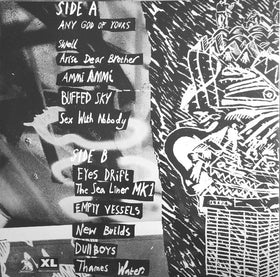 SIDE A
ANY GOD OF YOURS
Skhell
Arise Dear Brother
Ammi AMMi
BUFFED SKY
Sex With Nobody
SIDE B
EYES DRIFT
The Sea Liner MK 1
EMPTY VESSELS
New Builds
DULL BOYS
Thames Waters
XL